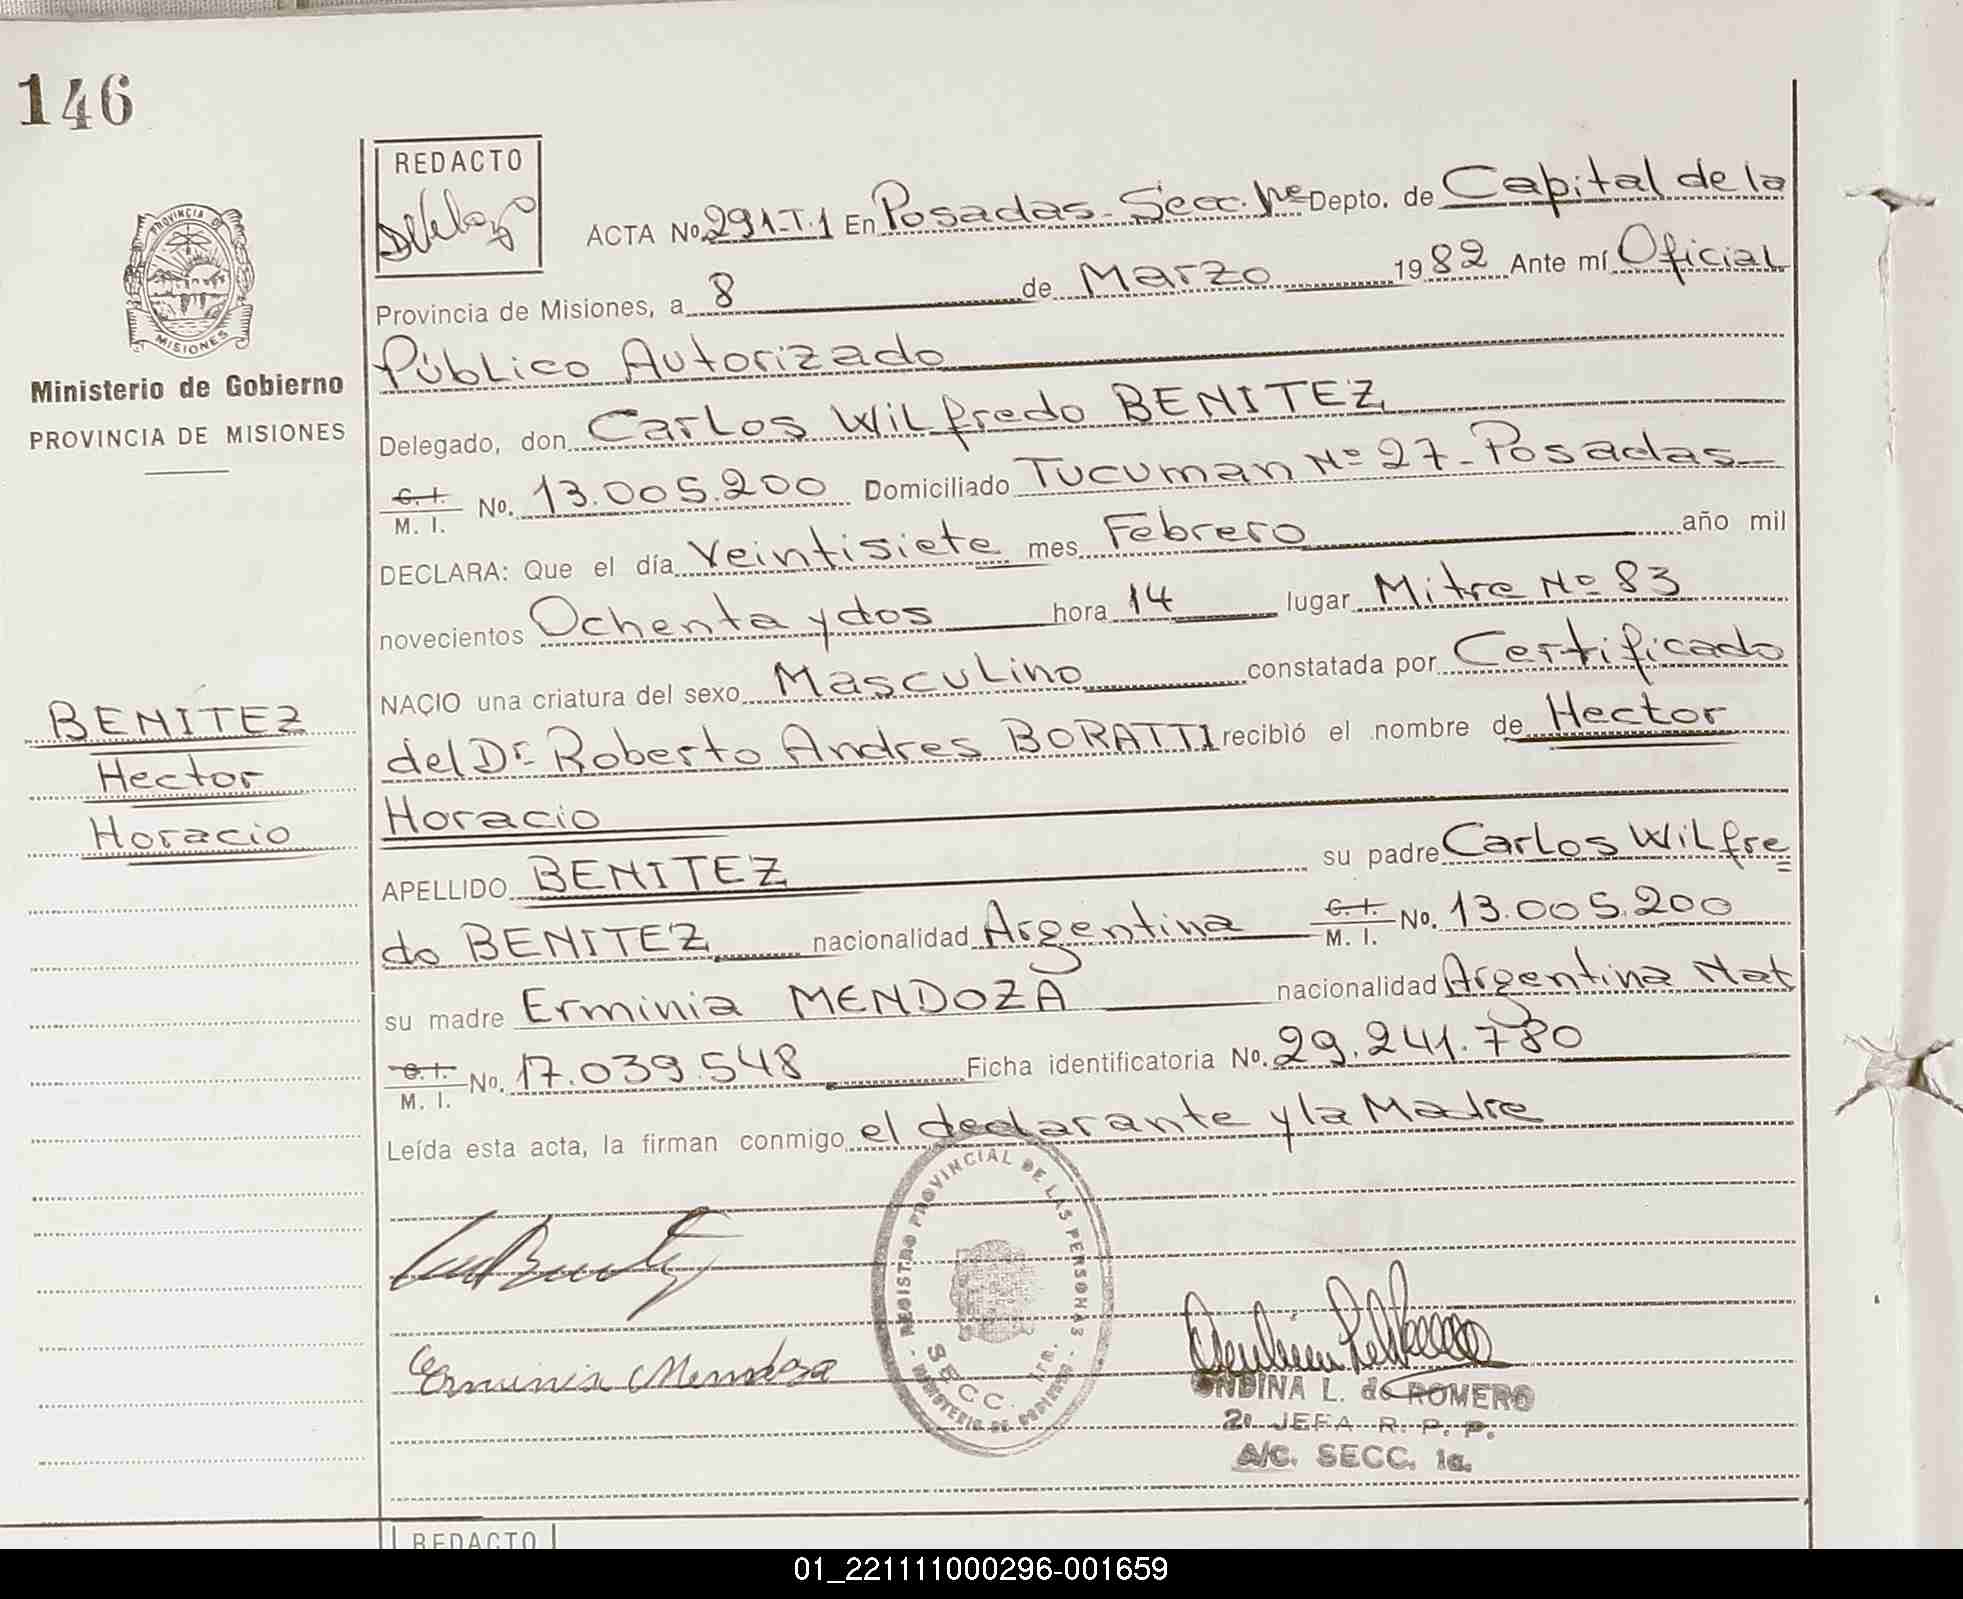 146
REDACTO
PROVINCIA DE
MISIONES
Ministerio de Gobierno
PROVINCIA DE MISIONES
BENITEZ
Hector
Horacio
ACTA No. 291-T.1 En Posadas - Secc. 1ra Depto. de Capital de la
Provincia de Misiones, a 8 de Marzo 1982 Ante mí Oficial
Público Autorizado
Delegado, don Carlos Wilfredo BENITEZ
C. I. M. I. No. 13.005.200 Domiciliado Tucuman Nº 27 - Posadas
DECLARA: Que el día Veintisiete mes Febrero año mil
novecientos Ochenta y dos hora 14 lugar Mitre Nº 83
NACIO una criatura del sexo Masculino constatada por Certificado
del Dr. Roberto Andres BORATTI recibió el nombre de Hector
Horacio
APELLIDO BENITEZ su padre Carlos Wilfre=
do BENITEZ nacionalidad Argentina C. I. M. I. No. 13.005.200
su madre Erminia MENDOZA nacionalidad Argentina Nat
C. I. M. I. No. 17.039.548 Ficha identificatoria No. 29.241.780
Leída esta acta, la firman conmigo el declarante y la Madre
- REGISTRO PROVINCIAL DE LAS PERSONAS -
SECC. 1ra.
MINISTERIO DE GOBIERNO
Erminia Mendoza
ONDINA L. de ROMERO
2º JEFA R. P. P.
A/C. SECC. 1a.
REDACTO
01_221111000296-001659